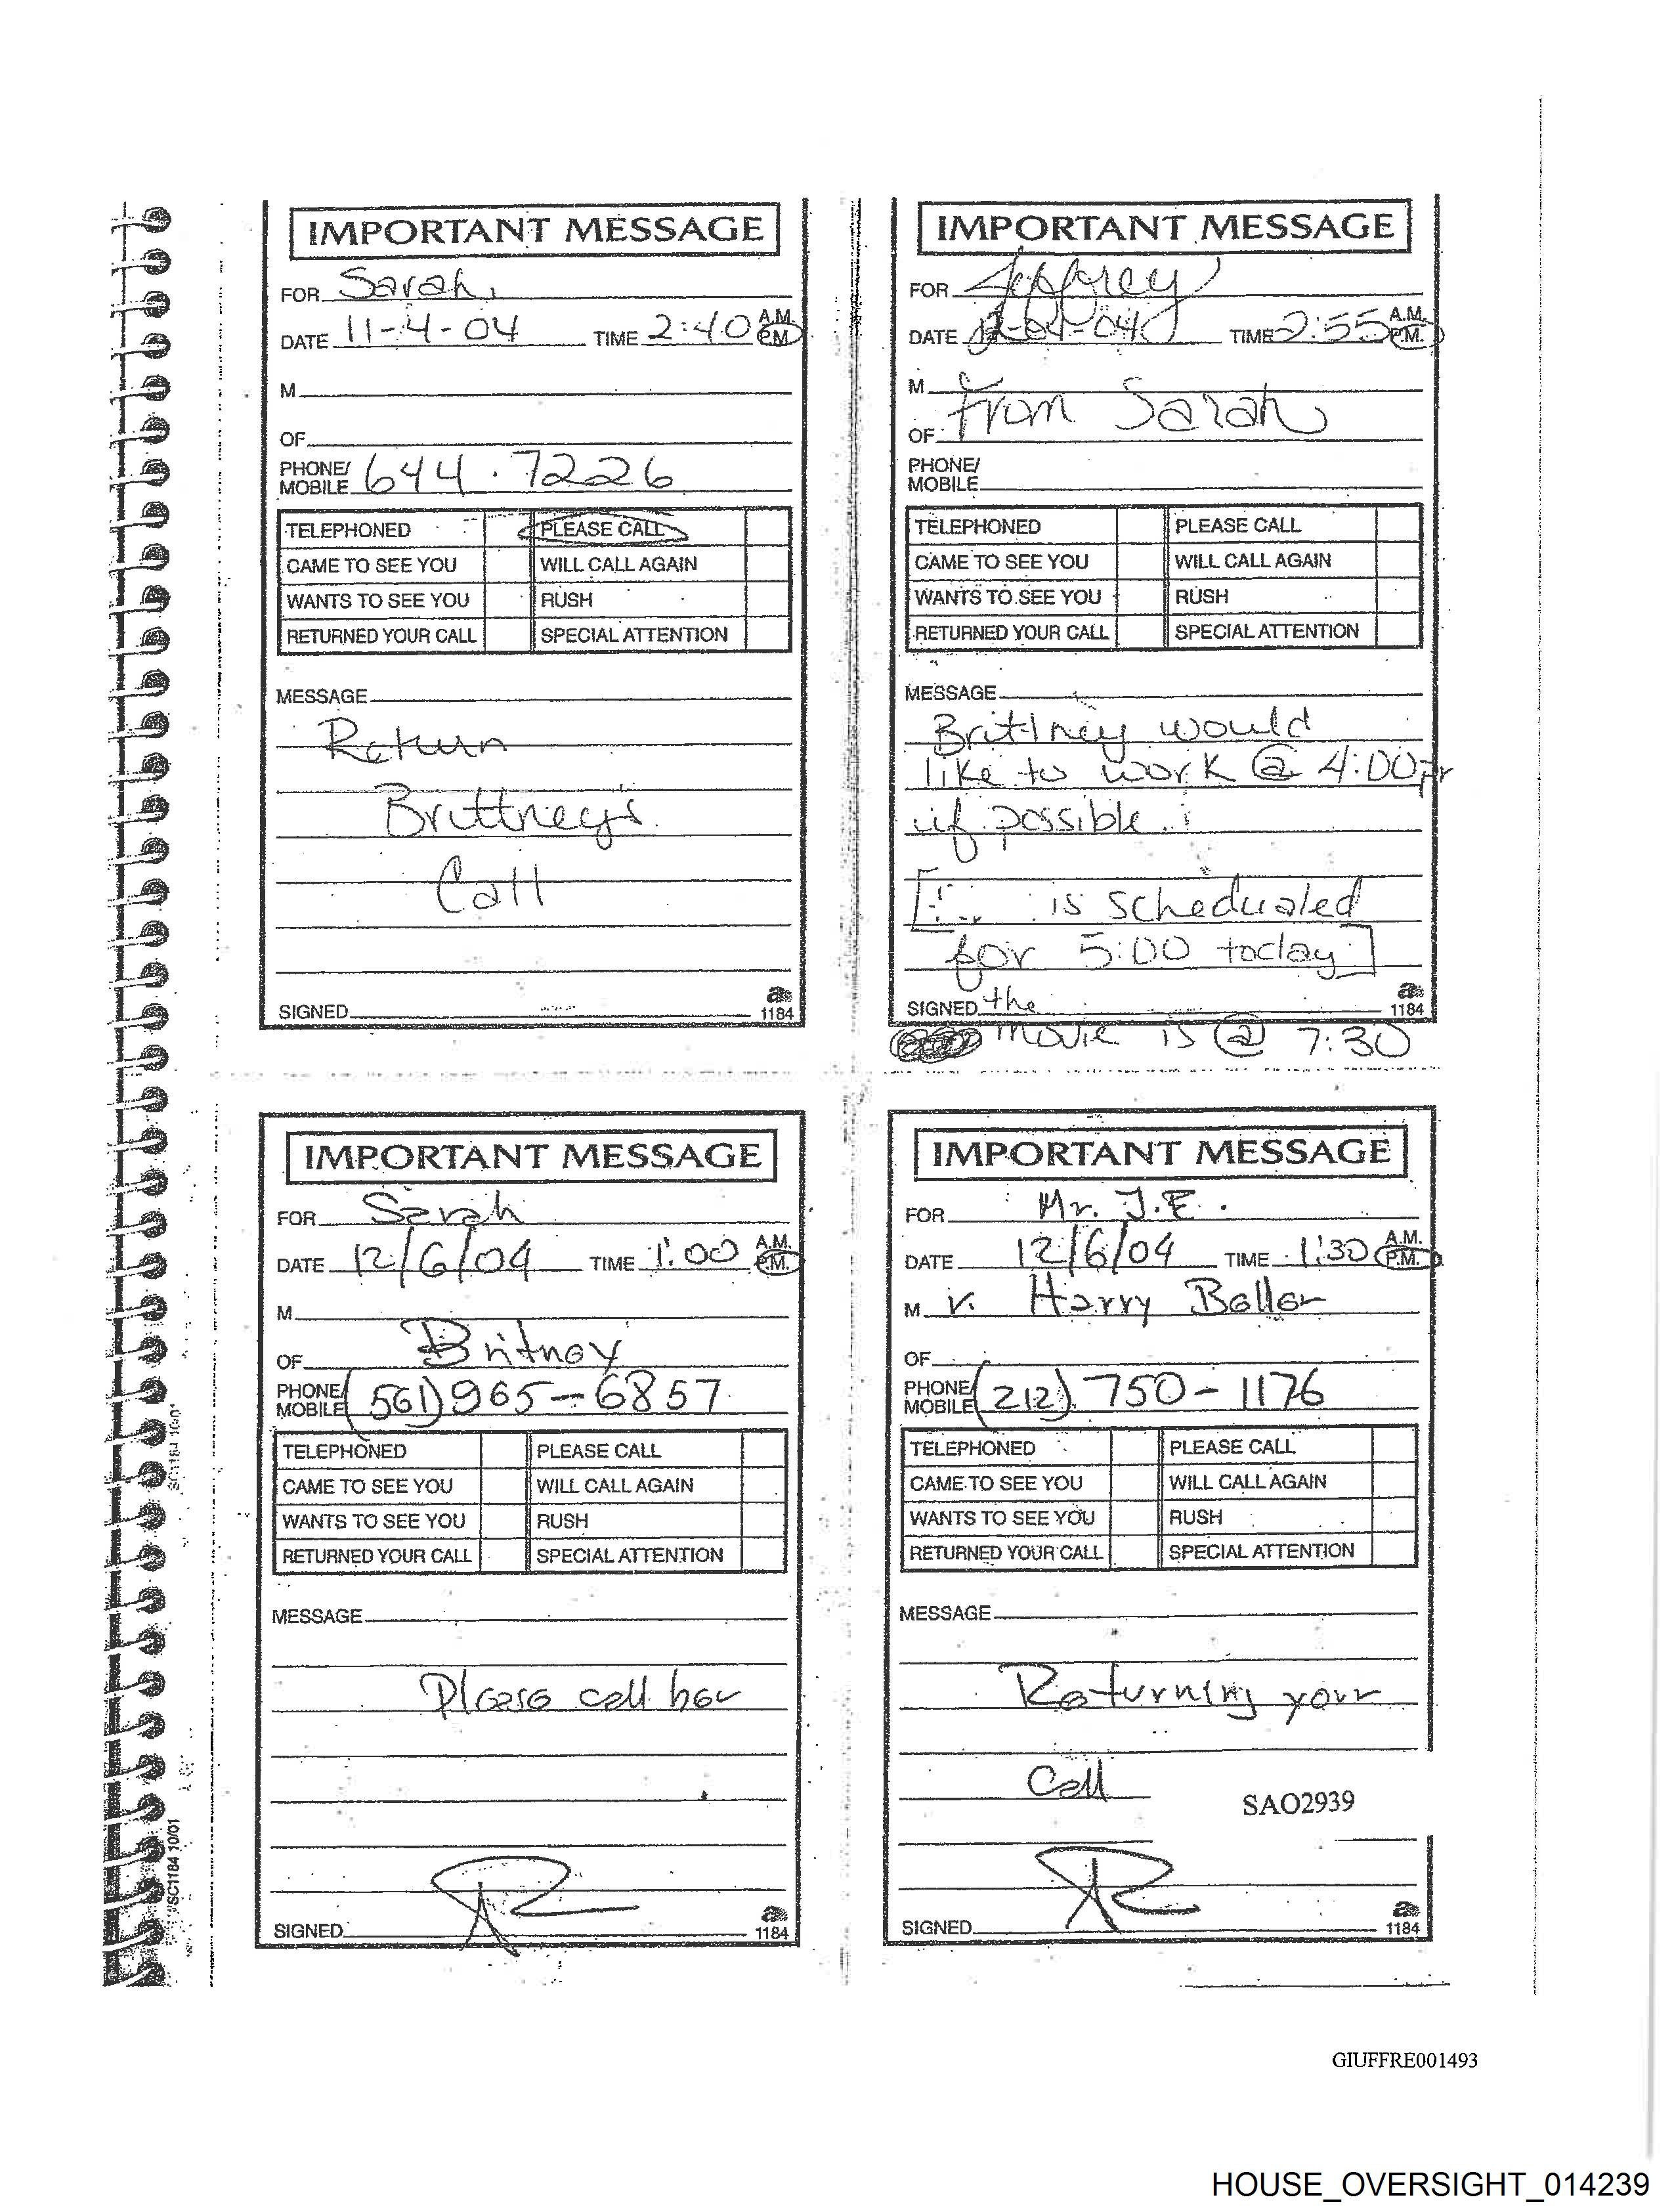 IMPORTANT MESSAGE
FOR Sarah
DATE 11-4-04 TIME 2:40 A.M. P.M.
M
OF
PHONE/ MOBILE 644.7226
TELEPHONED PLEASE CALL
CAME TO SEE YOU WILL CALL AGAIN
WANTS TO SEE YOU RUSH
RETURNED YOUR CALL SPECIAL ATTENTION
MESSAGE
Return
Brittney's
Call
SIGNED
1184
IMPORTANT MESSAGE
FOR Jeffrey
DATE 12-04-04 TIME 2:55 A.M. P.M.
M
From Sarah
OF
PHONE/ MOBILE
TELEPHONED PLEASE CALL
CAME TO SEE YOU WILL CALL AGAIN
WANTS TO SEE YOU RUSH
RETURNED YOUR CALL SPECIAL ATTENTION
MESSAGE
Brittney would
like to work @ 4:00
if possible.
[ is schedualed
for 5:00 today]
SIGNED the
1184
movie is @ 7:30
IMPORTANT MESSAGE
FOR Sarah
DATE 12/6/04 TIME 1:00 A.M. P.M.
M
OF Britney
PHONE/ MOBILE (561) 965-6857
TELEPHONED PLEASE CALL
CAME TO SEE YOU WILL CALL AGAIN
WANTS TO SEE YOU RUSH
RETURNED YOUR CALL SPECIAL ATTENTION
MESSAGE
Please call her
SIGNED
1184
IMPORTANT MESSAGE
FOR Mr. J.E.
DATE 12/6/04 TIME 1:30 A.M. P.M.
M r. Harry Beller
OF
PHONE/ MOBILE (212) 750-1176
TELEPHONED PLEASE CALL
CAME TO SEE YOU WILL CALL AGAIN
WANTS TO SEE YOU RUSH
RETURNED YOUR CALL SPECIAL ATTENTION
MESSAGE
Returning your
Call
SAO2939
SIGNED
1184
SC1184 10/01
GIUFFRE001493
HOUSE_OVERSIGHT_014239